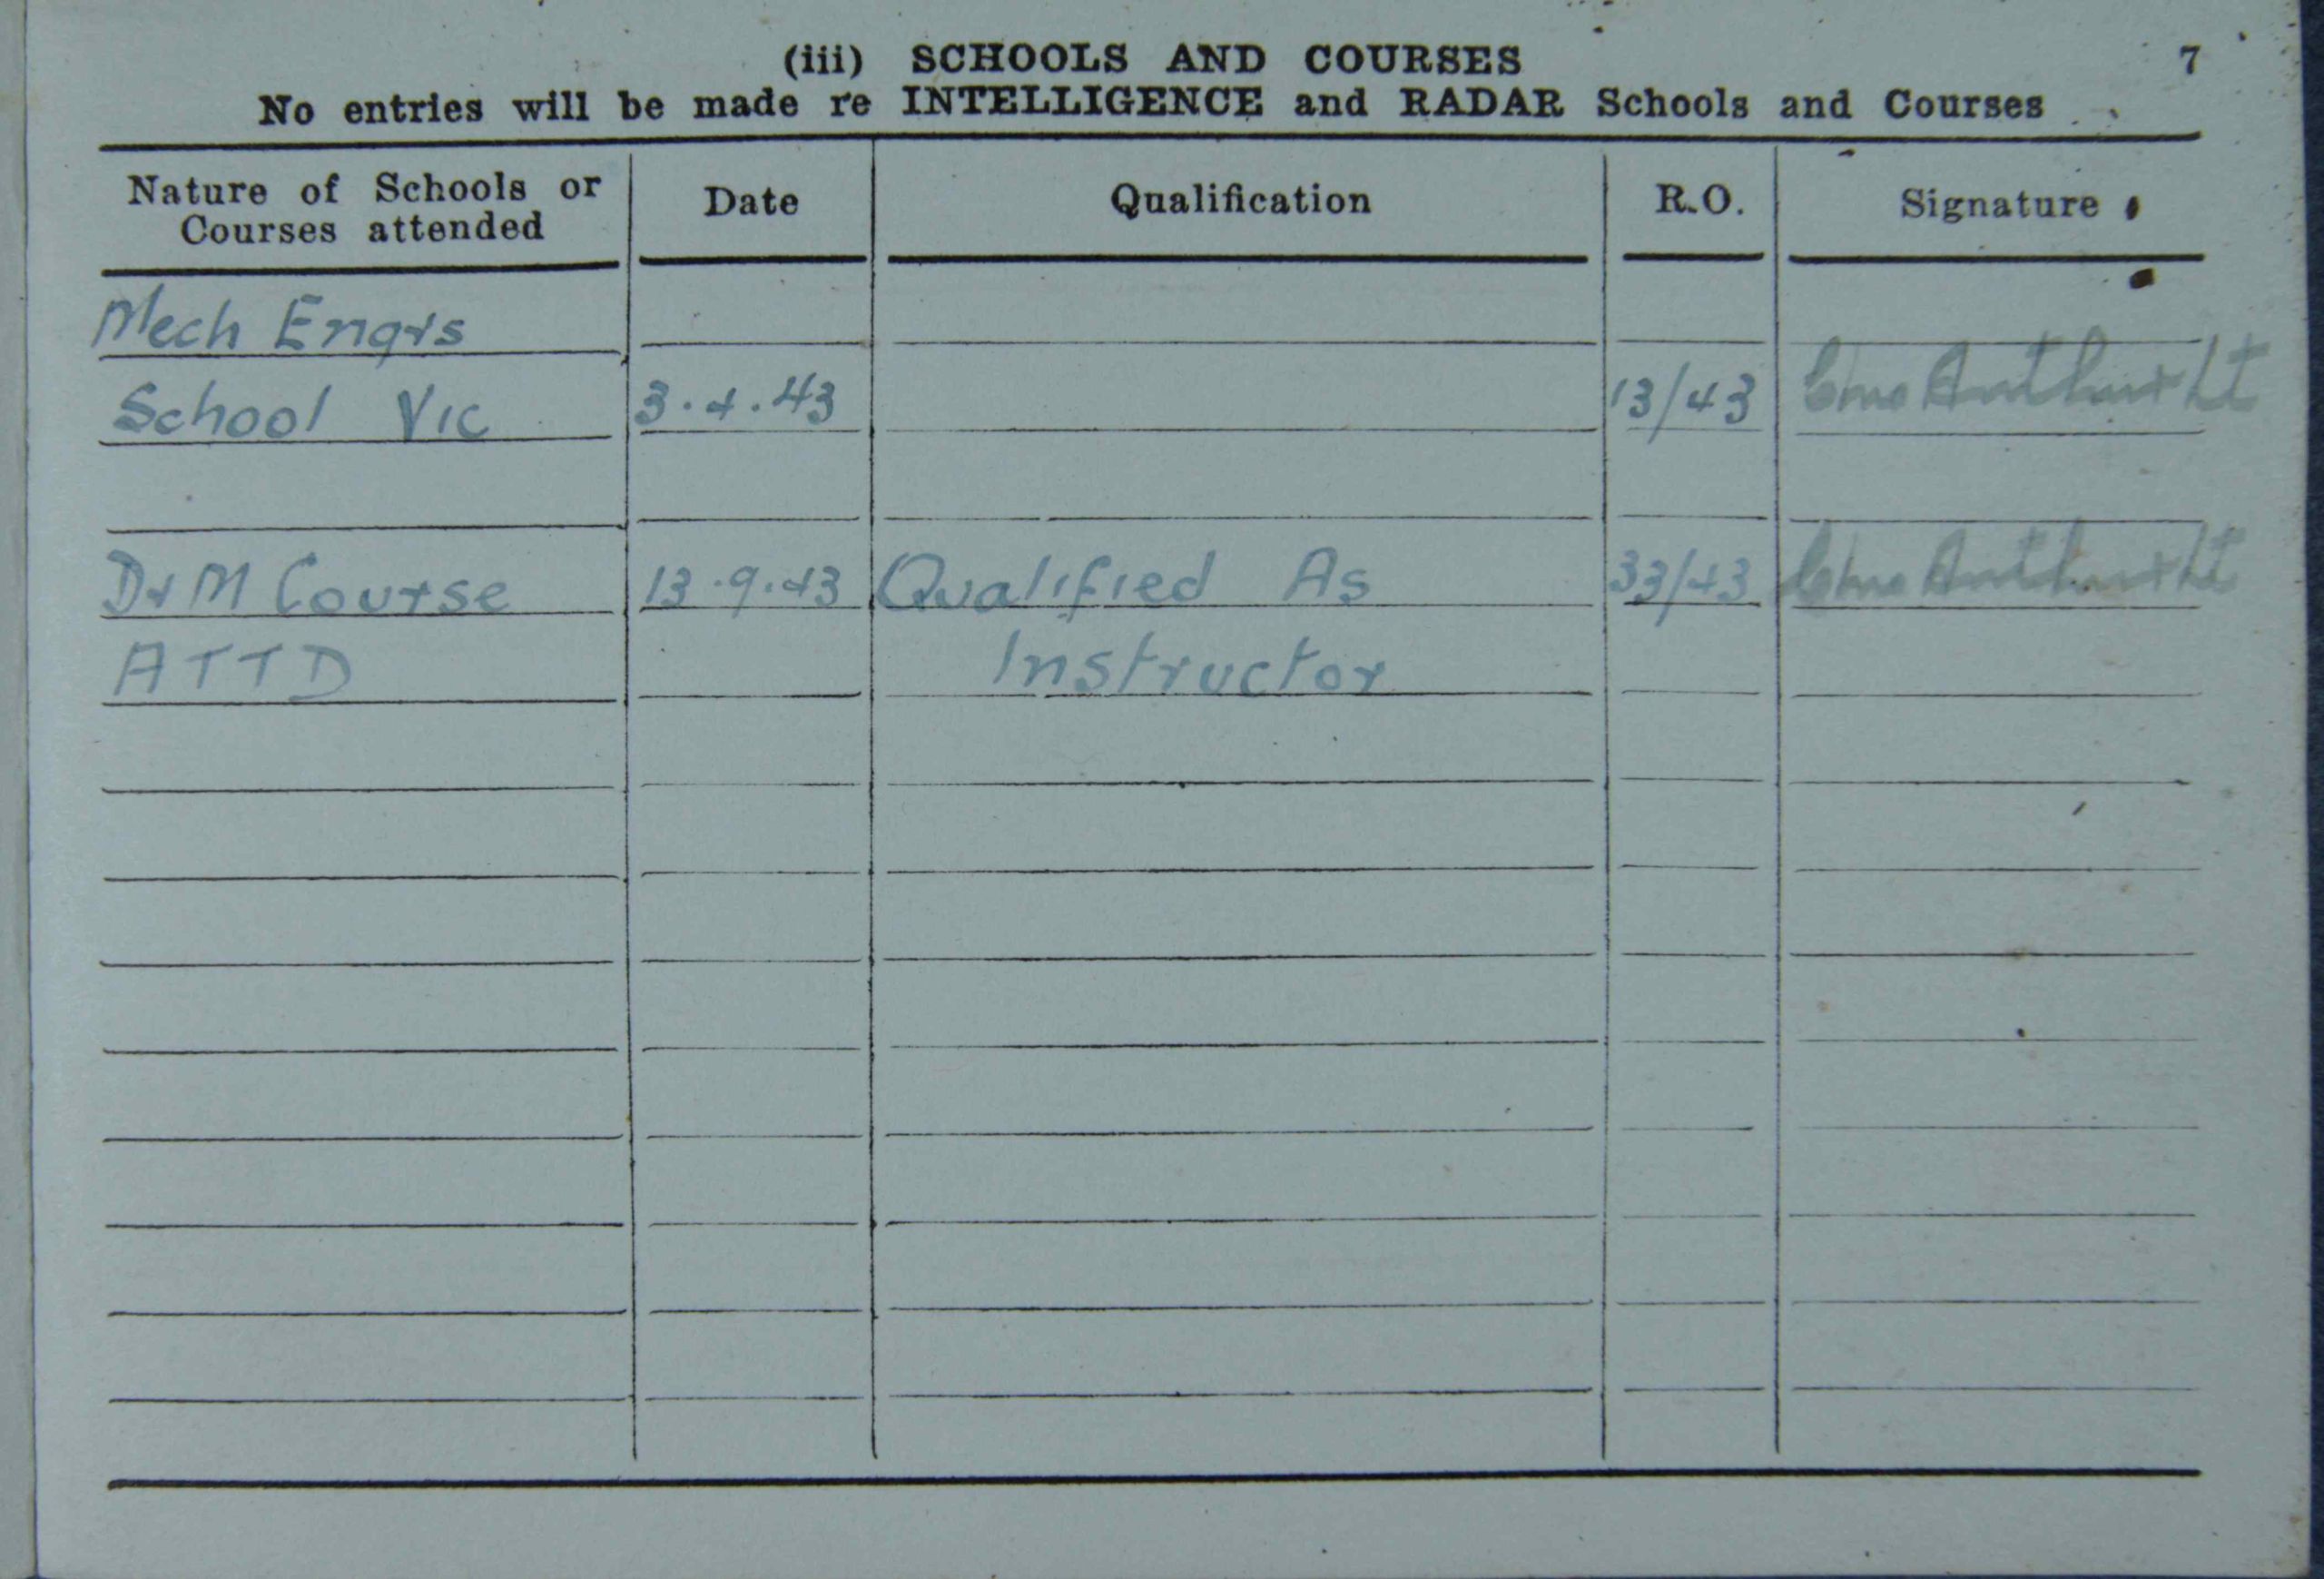 (iii) SCHOOLS AND COURSES 7
No entries will be made re INTELLIGENCE and RADAR Schools and Courses
Nature of Schools or
Courses attended
Date Qualification R.O. Signature
Mech Engrs
School Vic 3.4.43 13/43 Lt
D&M Course 13.9.43 Qualified As 33/43 Lt
ATTD Instructor